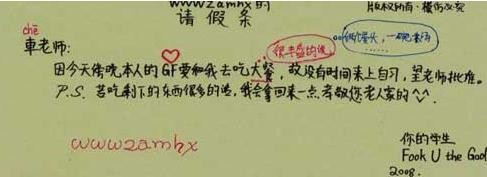 wwwzamhx的
请假条
版权所有·模仿必究
chē
車老师:
很丰盛的说
馒头,一碗
因今天傍晚本人的GF要和我去吃大餐,故没有时间来上自习,望老师批准。
P.S. 若吃剩下的东西很多的话,我会拿回来一点孝敬您老人家的^^.
wwwzamhx
你的学生
Fook U the God
2008.